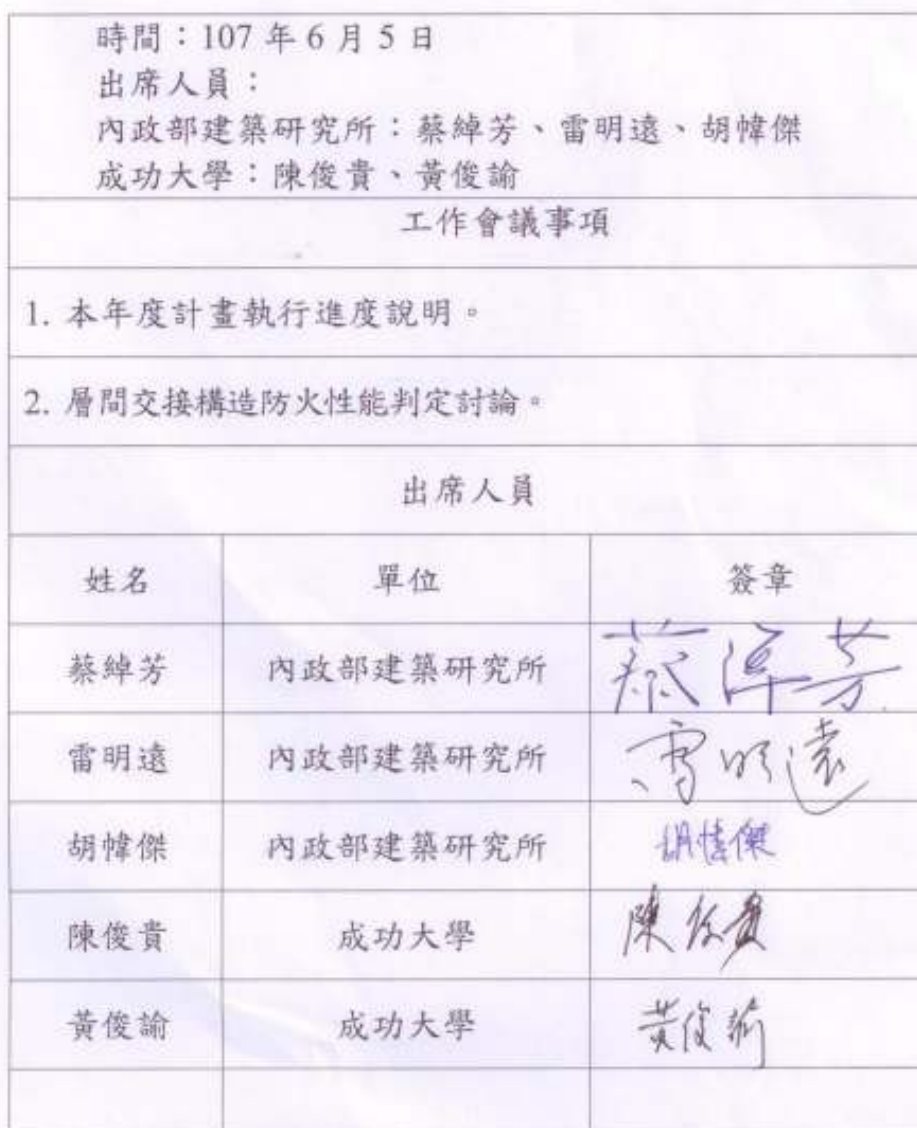 時間：107 年 6 月 5 日
出席人員：
內政部建築研究所：蔡綽芳、雷明遠、胡幃傑
成功大學：陳俊貴、黃俊諭
工作會議事項
1. 本年度計畫執行進度說明。
2. 層間交接構造防火性能判定討論。
出席人員
姓名 單位 簽章
蔡綽芳 內政部建築研究所 蔡綽芳
雷明遠 內政部建築研究所 雷明遠
胡幃傑 內政部建築研究所 胡幃傑
陳俊貴 成功大學 陳俊貴
黃俊諭 成功大學 黃俊諭